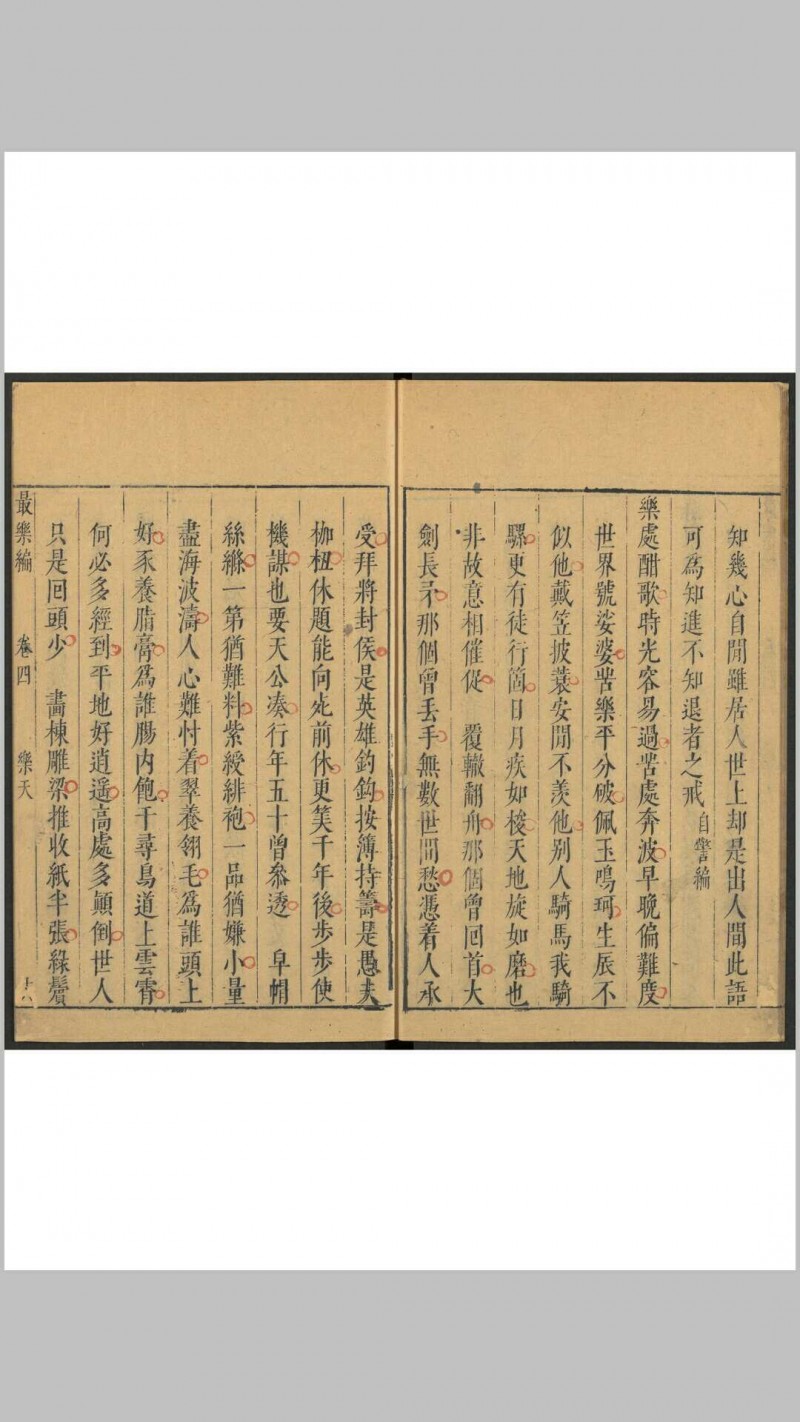 知幾心自閒雖居人世上却是出人間此語
可爲知進不知退者之戒 自警編
樂處酣歌時光容易過苦處奔波早晚偏難度
世界號娑婆苦樂平分破佩玉鳴珂生辰不
似他戴笠披蓑安閒不羨他别人騎馬我騎
騾更有徒行箇日月疾如梭天地旋如磨也
非故意相催促 覆轍翻舟那個曾回首大
劍長矛那個曾丢手無數世間愁憑着人承
受拜將封侯是英雄釣鈎按簿持籌是愚夫
枷杻休題能向死前休更笑千年後步步使
機謀也要天公凑行年五十曾參透 皁帽
絲縧一第猶難料紫綬緋袍一品猶嫌小量
盡海波濤人心難忖着翠養翎毛爲誰頭上
好豕養脂膏爲誰腸内飽千尋鳥道上雲霄
何必多經到平地好逍遥高處多顛倒世人
只是回頭少 畵棟雕梁推收紙半張綠鬢
最樂編 卷四 樂天 十八